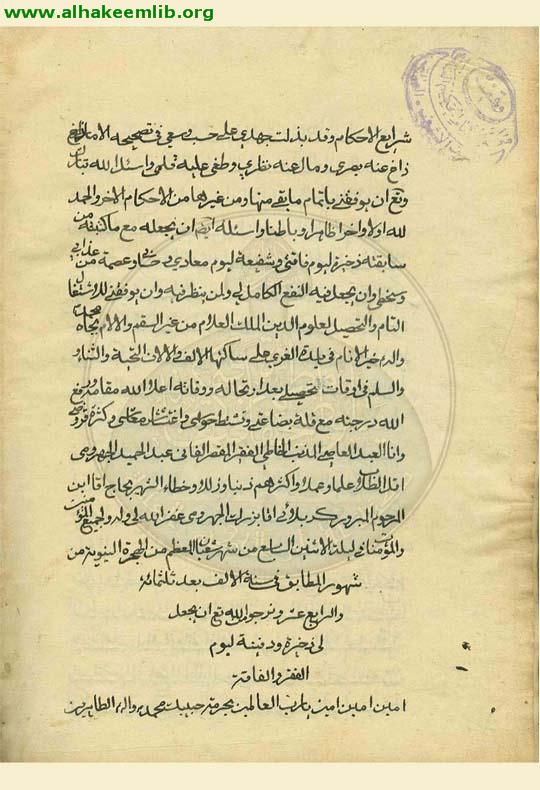 www.alhakeemlib.org
شرايع الاحكام وقد بذلت جهدي على حسب وسعي في تصحيحه الا ما
زاغ عنه بصري ومال عنه نظري وطغى عليه قلمي واسئل الله تبارك
وتع ان يوفقني باتمام ما بقي منها ومن غيرها من الاحكام الاخر والحمد
لله اولا واخرا ظاهرا وباطنا واسئله ايضا ان يجعله مع ما كتبته من
سابقته ذخيرة ليوم فاقتي وشفيعة ليوم معادي وعصمة من عذابي
وسخطي وان يجعل فيه النفع الكامل لي ولمن ينظر فيه وان يوفقني للاشتغال
التام والتحصيل لعلوم الدين الملك العلام من غير السقم والالام بجاه محمد
واله خير الانام في بلدة الغري على ساكنها الالف والالاف التحية والثناء
والسلم في اوقات تحصيلي بعد ارتحاله ووفاته اعلا الله مقامه ورفع
الله درجته مع قلة بضاعتي وتشتت حواسي واغتشاش وكثرة
وانا العبد العاصي المذنب الخاطي الفقير المقصر الفاني عبد الحميد الجهرمي
اقل الطلاب علما وعملا واكثرهم ذنبا وزللا وخطاء الشهير بحاج اقا ابن
المرحوم المبرور كربلائي اقا بزرك الجهرمي غفر الله لي وله ولجميع المؤمنين
والمؤمنات في ليلة الاثنين السابع من شهر شعبان المعظم من الهجرة النبوية من
شهور المطابق في سنة الالف بعد ثلثمائة
والرابع عشر ونرجو الله تع ان يجعل
لي ذخيرة ودفينة ليوم
الفقر والفاقة
امين امين امين يا رب العالمين بحرمة حبيبك محمد واله الطاهرين